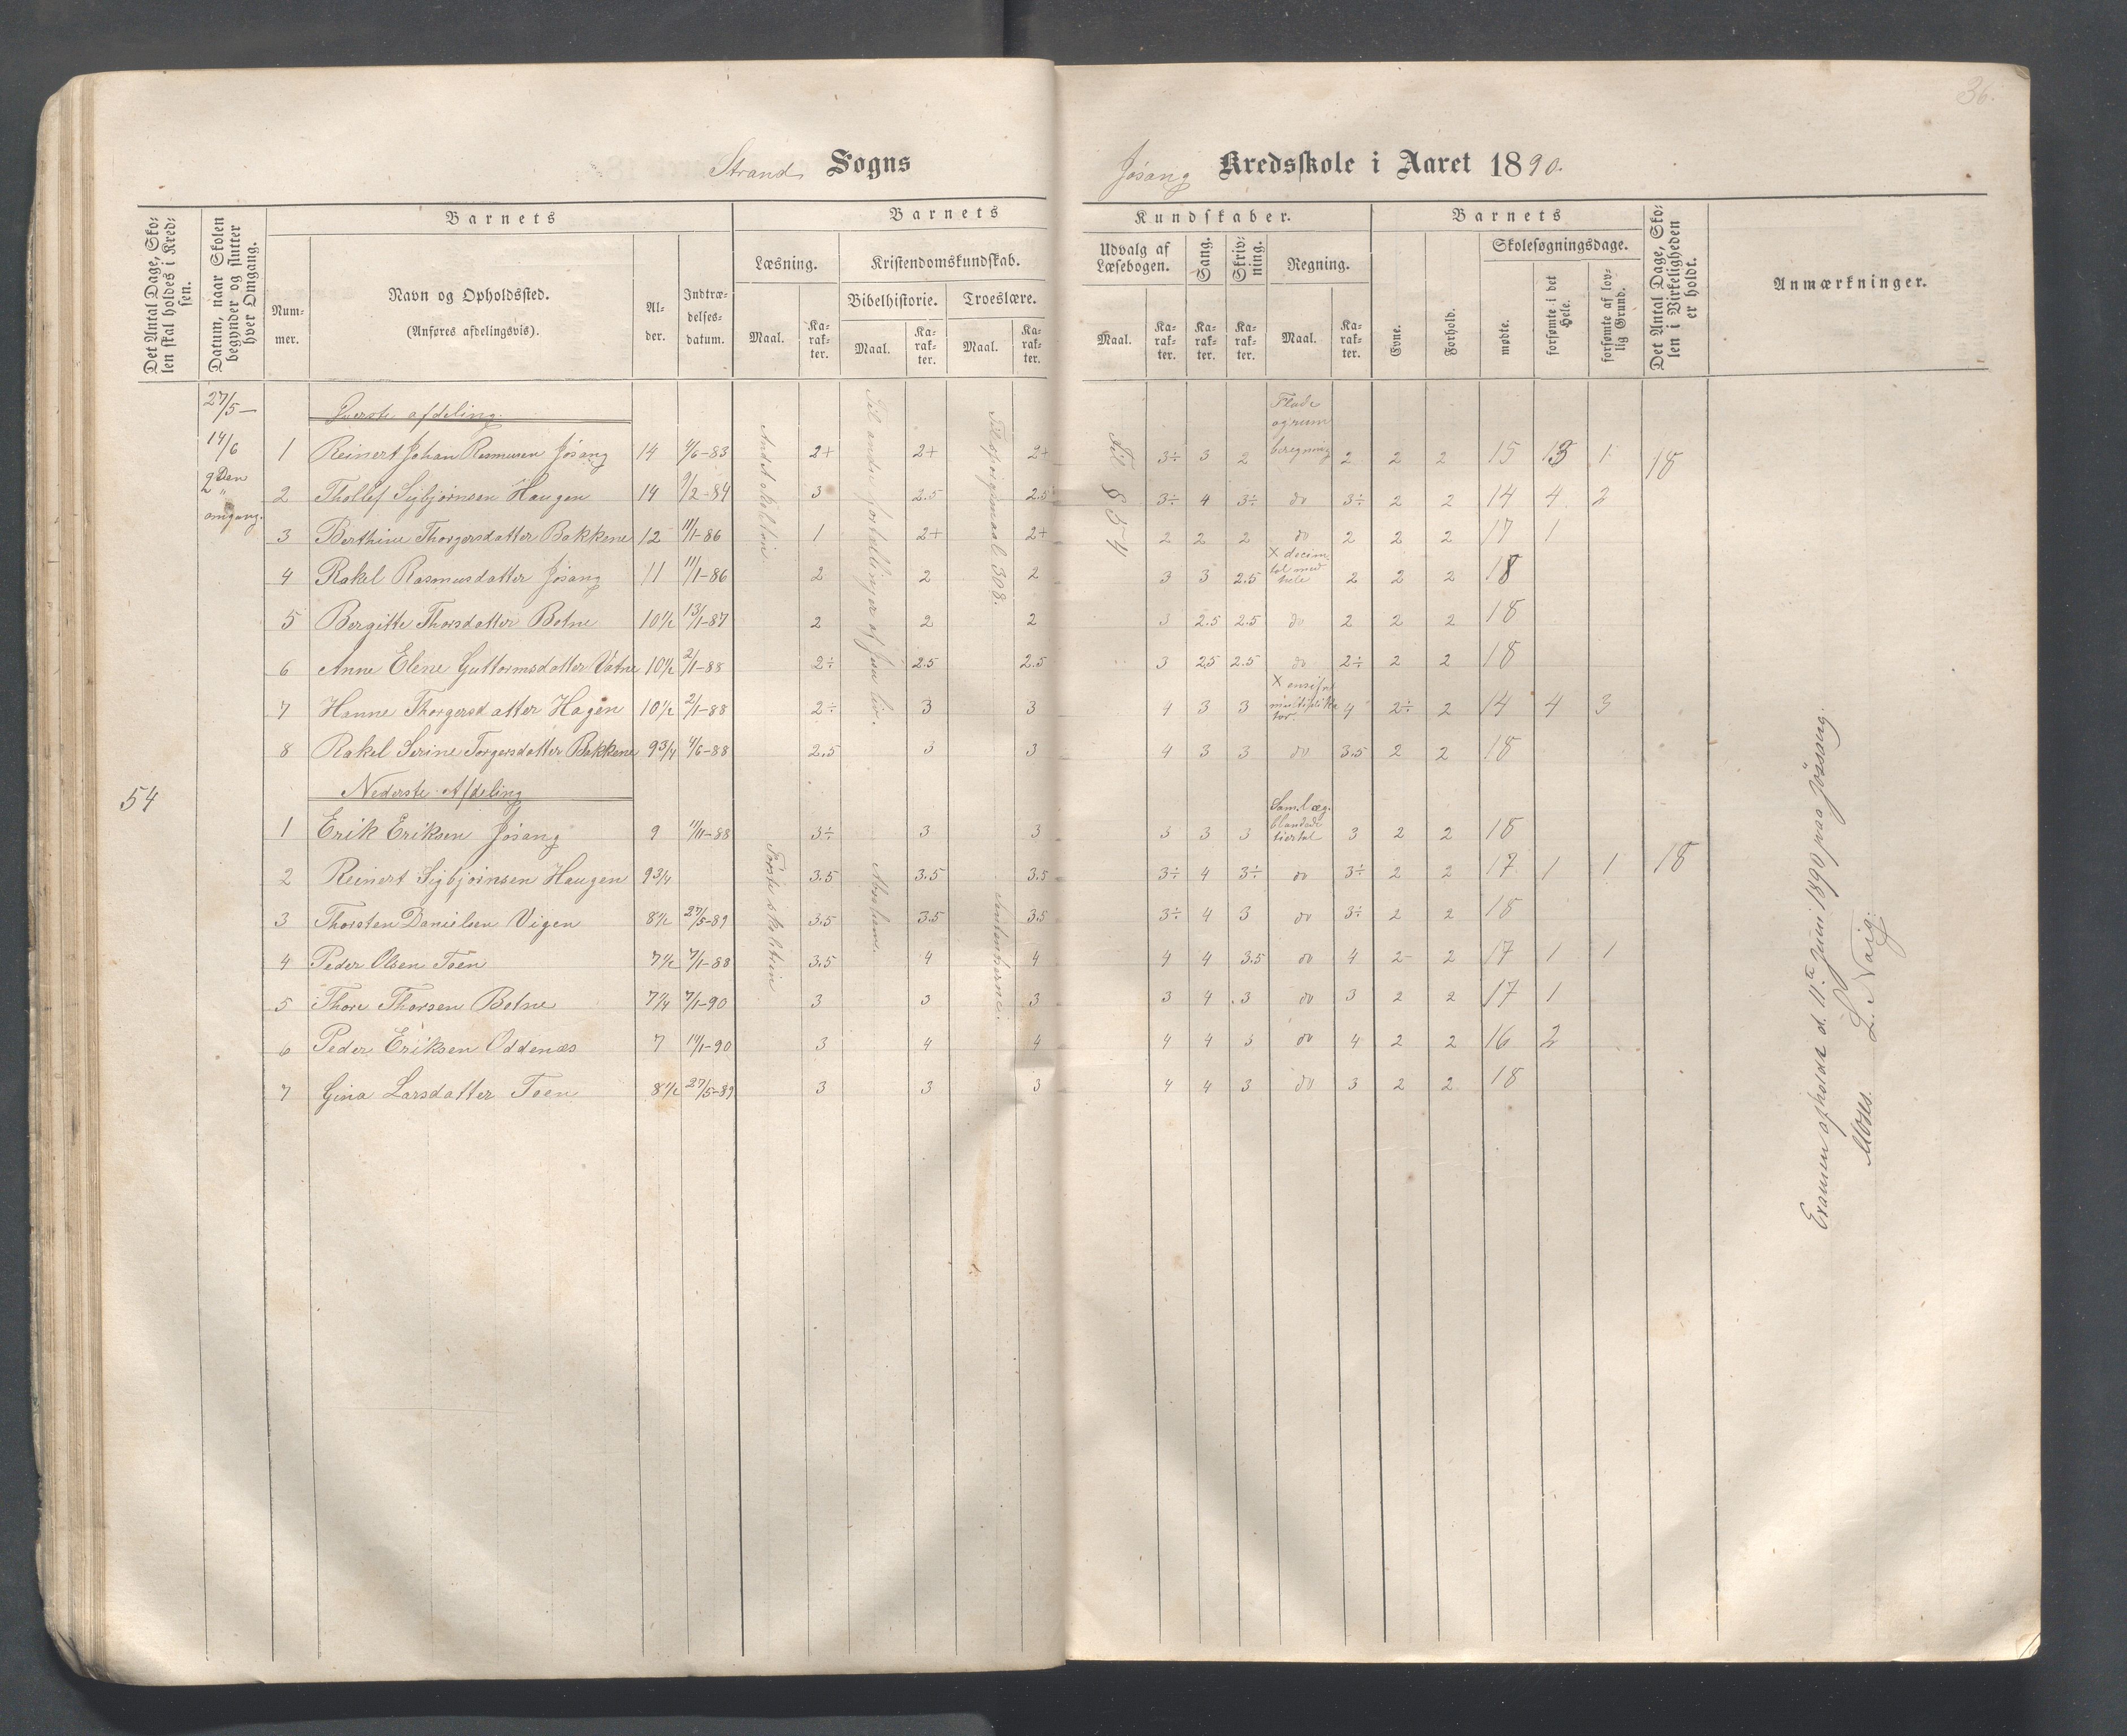 36.
Strand Sogns
Jøsang Kredsskole i Aaret 1890.
Det Antal Dage, Skolen skal holdes i Kredsen.
Datum, naar Skolen begynder og slutter hver Omgang.
Barnets
Nummer.
Navn og Opholdssted.
(Anføres afdelingsvis).
Alder.
Indtrædelsesdatum.
Barnets
Kundskaber.
Læsning.
Maal.
Karakter.
Kristendomskundskab.
Bibelhistorie.
Maal.
Karakter.
Troeslære.
Maal.
Karakter.
Udvalg af Læsebogen.
Maal.
Karakter.
Sang.
Karakter.
Skrivning.
Karakter.
Regning.
Maal.
Karakter.
Barnets
Evne.
Forhold.
Skolesøgningsdage.
mødte.
forsømte i det Hele.
forsømte af lovlig Grund.
Det Antal Dage, Skolen i Virkeligheden er holdt.
Anmærkninger.
27/5 —
14/6
2den omgang.
54
Øverste afdeling.
Andet skoletrin
Til andre fortællinger af Jesu liv.
Til spørgsmaal 308.
Til 854
1 Reinert Johan Rasmusen Jøsang 14 4/6-83 2+ 2+ 2+ 3÷ 3 2 Flade og rum beregning 2 2 2 15 13 1 18
2 Thollef Sigbjørnsen Haugen 14 9/2-84 3 2.5 2.5 3÷ 4 3÷ do 3÷ 2 2 14 4 2
3 Berthine Thorgersdatter Bakkene 12 11/1-86 1 2+ 2+ 2 2 2 do 2 2 2 17 1
4 Rakel Rasmusdatter Jøsang 11 11/1-86 2 2 2 3 3 2.5 X decimtal med hele 2 2 2 18
5 Bergitte Thorsdatter Botne 10½ 13/1-87 2 2 2 3 2.5 2.5 do 2 2 2 18
6 Anne Elene Guttormsdatter Vatne 10½ 2/1-88 2÷ 2.5 2.5 3 2.5 2.5 do 2÷ 2 2 18
7 Hanne Thorgersdatter Hagen 10½ 2/1-88 2÷ 3 3 4 3 3 X ensifret multiplikator 4 2÷ 2 14 4 3
8 Rakel Serine Torgersdatter Bakkene 9¾ 4/6-88 2.5 3 3 4 3 3 do 3.5 2 2 18
Nederste Afdeling
Første skoletrin
Absalem.
Sententserne.
1 Erik Eriksen Jøsang 9 11/11-88 3÷ 3 3 3 3 3 Saml æg. blandede tiertal 3 2 2 18
2 Reinert Sigbjørnsen Haugen 9¾ 3.5 3.5 3.5 3÷ 4 3÷ do 3÷ 2 2 17 1 1 18
3 Thorsten Danielsen Vigen 8½ 27/5-89 3.5 3.5 3.5 3÷ 4 3 do 3÷ 2 2 18
4 Peder Olsen Toen 7½ 7/1-88 3.5 4 4 4 4 3.5 do 4 2 2 17 1 1
5 Thore Thorsen Botne 7¼ 7/1-90 3 3 3 3 4 3 do 3 2 2 17 1
6 Peder Eriksen Oddenæs 7 14/1-90 3 4 4 4 4 3 do 4 2 2 16 2
7 Gina Larsdatter Toen 8½ 27/5-89 3 3 3 4 4 3 do 3 2 2 18
Examen afholdt d. 11te Juni 1890 paa Jøssang.
Moses. L. Naig.